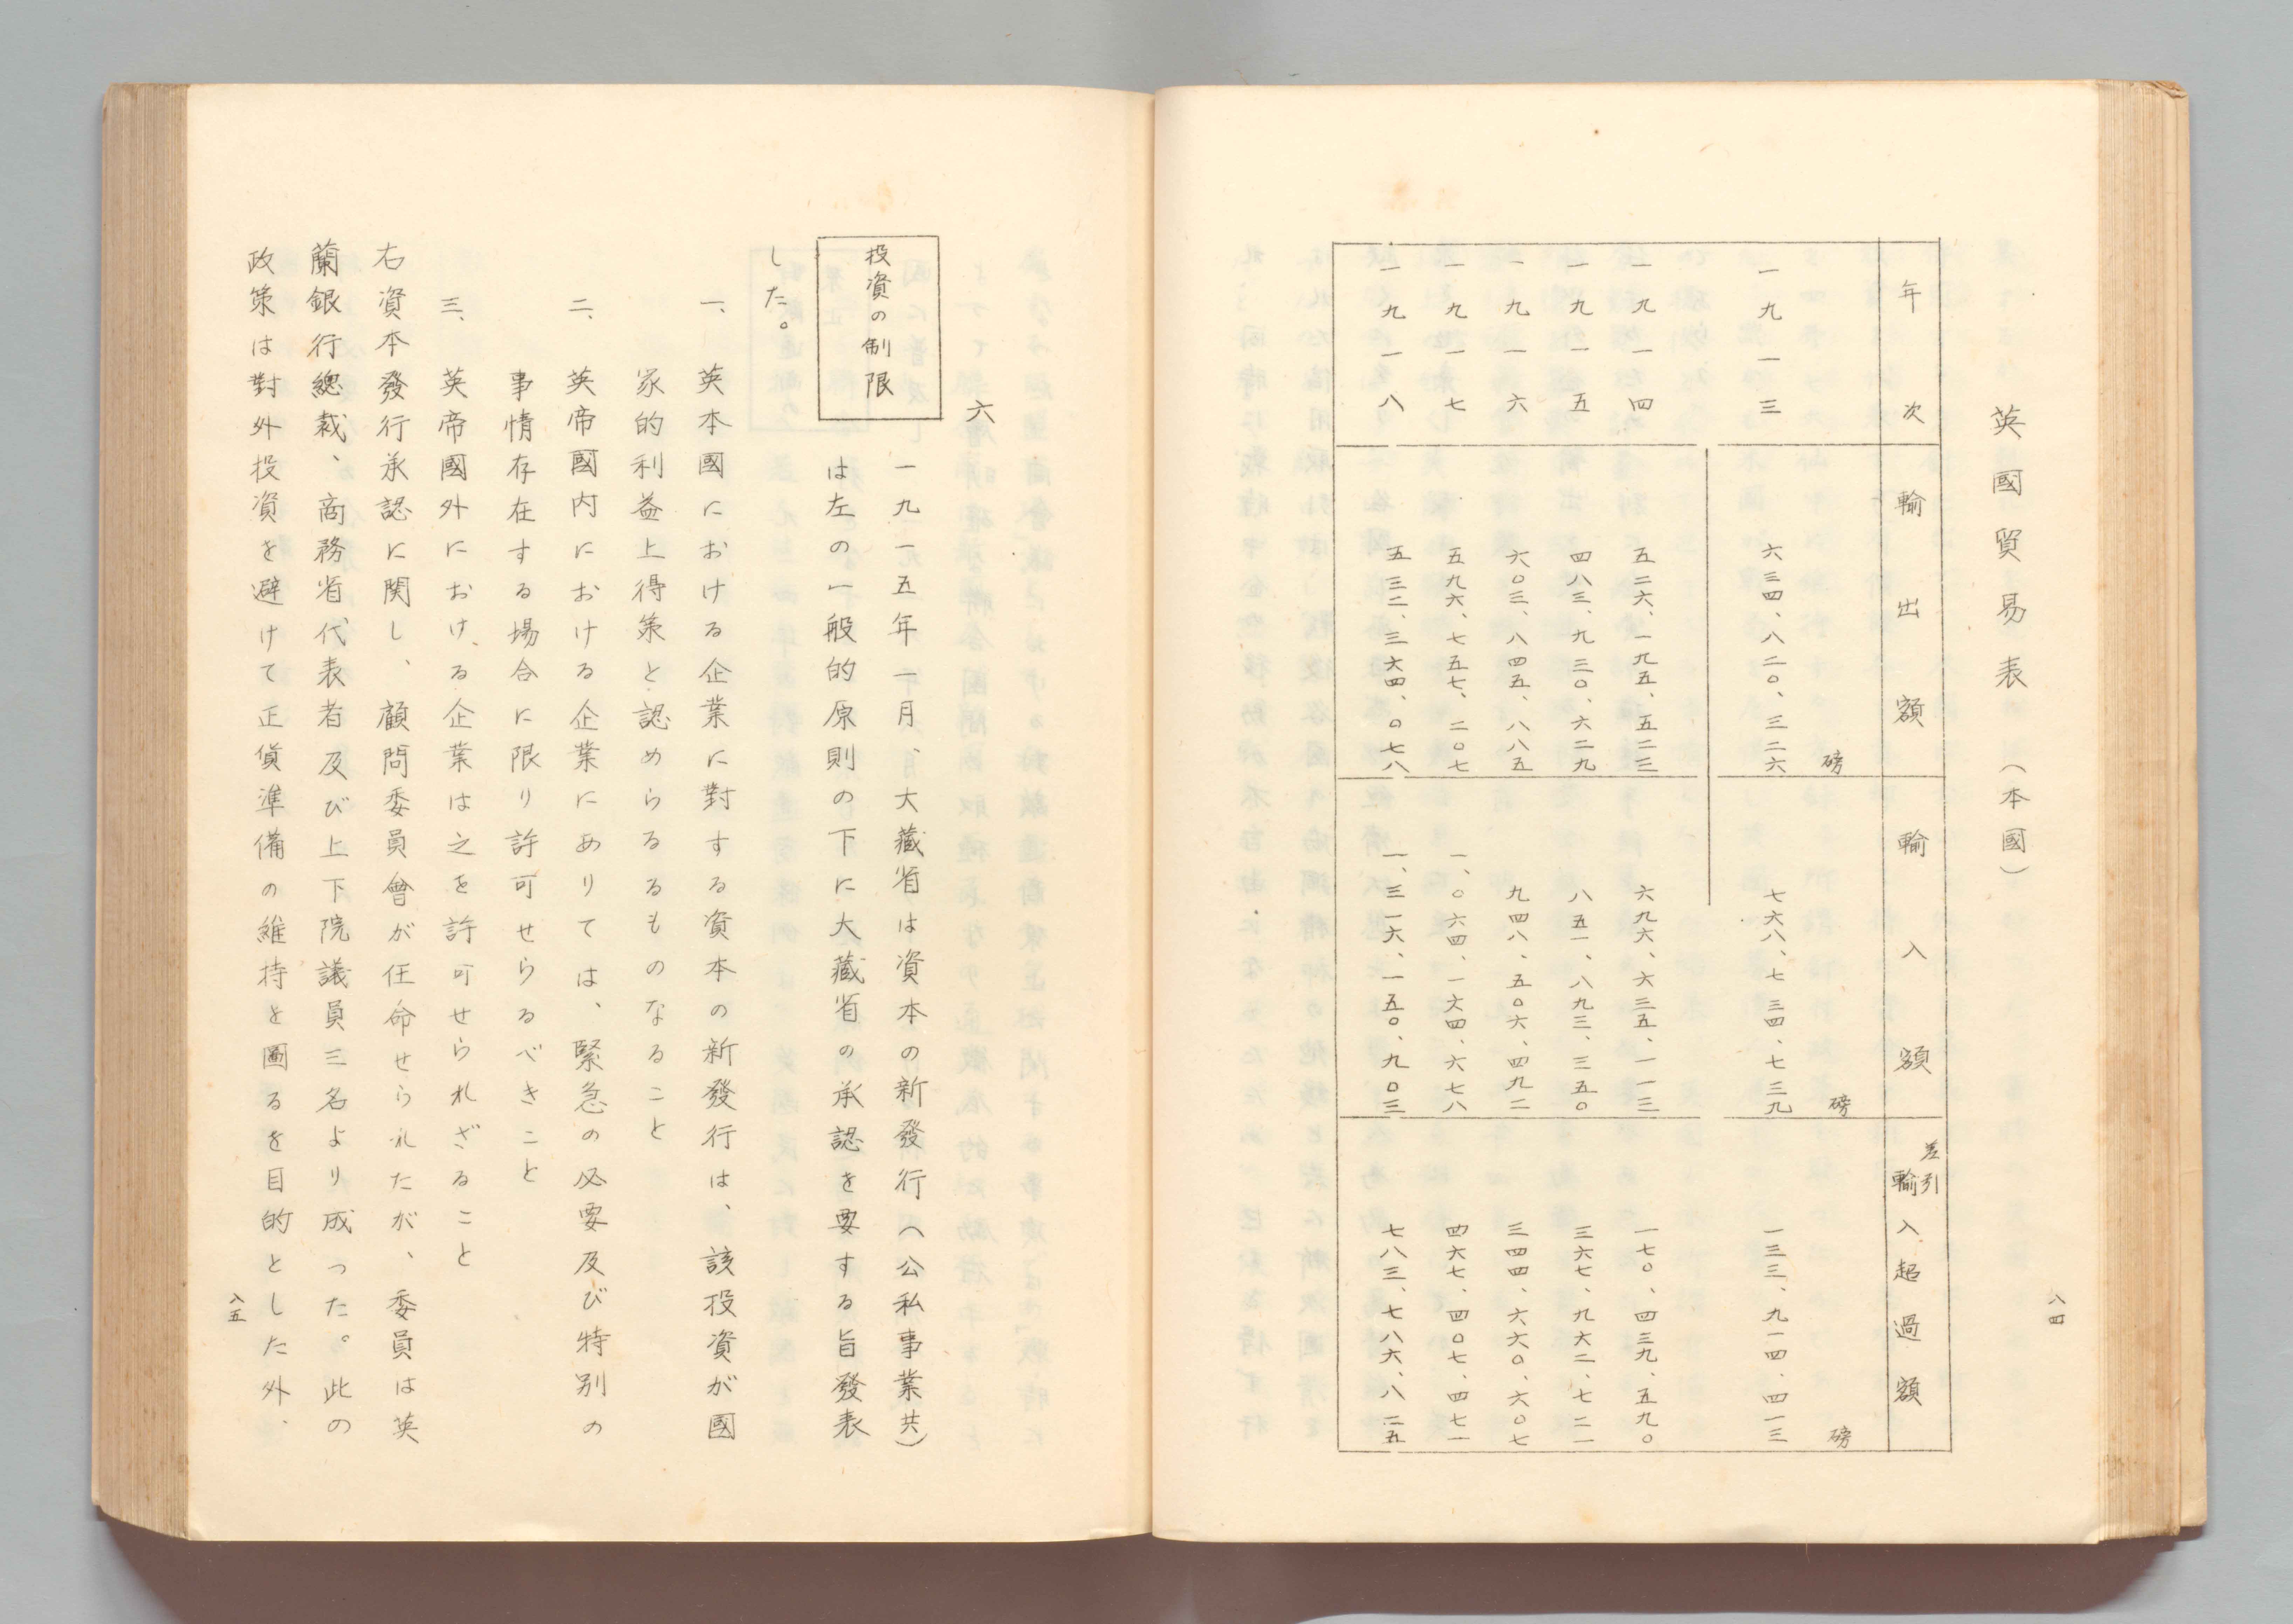 英國貿易表（本國）
年次 輸出額 輸入額 差引輸入超過額
磅 磅 磅
一九一三 六三四、八二〇、三二六 七六八、七三四、七三九 一三三、九一四、四一三
一九一四 五二六、一九五、五二三 六九六、六三五、一一三 一七〇、四三九、五九〇
一九一五 四八三、九三〇、六二九 八五一、八九三、三五〇 三六七、九六二、七二一
一九一六 六〇三、八四五、八八五 九四八、五〇六、四九二 三四四、六六〇、六〇七
一九一七 五九六、七五七、二〇七 一、〇六四、一六四、六七八 四六七、四〇七、四七一
一九一八 五三二、三六四、〇七八 一、三一六、一五〇、九〇三 七八三、七八六、八二五
八四
六
投資の制限
一九一五年一月、大藏省は資本の新發行（公私事業共）
は左の一般的原則の下に大藏省の承認を要する旨發表
した。
一、英本國における企業に對する資本の新發行は、該投資が國
家的利益上得策と認めらるるものなること
二、英帝國内における企業にありては、緊急の必要及び特別の
事情存在する場合に限り許可せらるべきこと
三、英帝國外における企業は之を許可せられざること
右資本發行承認に関し、顧問委員會が任命せられたが、委員は英
蘭銀行總裁、商務省代表者及び上下院議員三名より成つた。此の
政策は對外投資を避けて正貨準備の維持を圖るを目的とした外、
八五